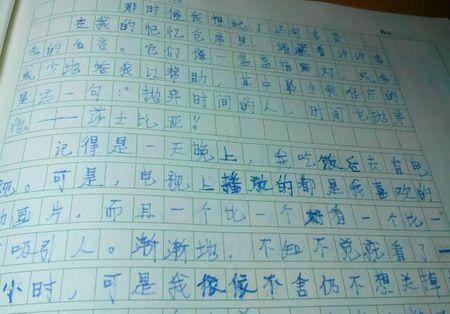 那时候我想起了这句名言
在我的记忆仓库里，储藏着许许多
多的名言。它们像一盏盏指路灯，或多
或少地给我以帮助，其中最令我难忘的
是这一句："抛弃时间的人，时间也抛弃
他——莎士比亚"
记得是一天晚上，我吃饭后去看电
视。可是，电视上播放的都是我喜欢的
动画片，而且一个比一个好看一个比一
个吸引人。渐渐地，不知不觉就看了一
小时，可是我依依不舍仍不想关掉